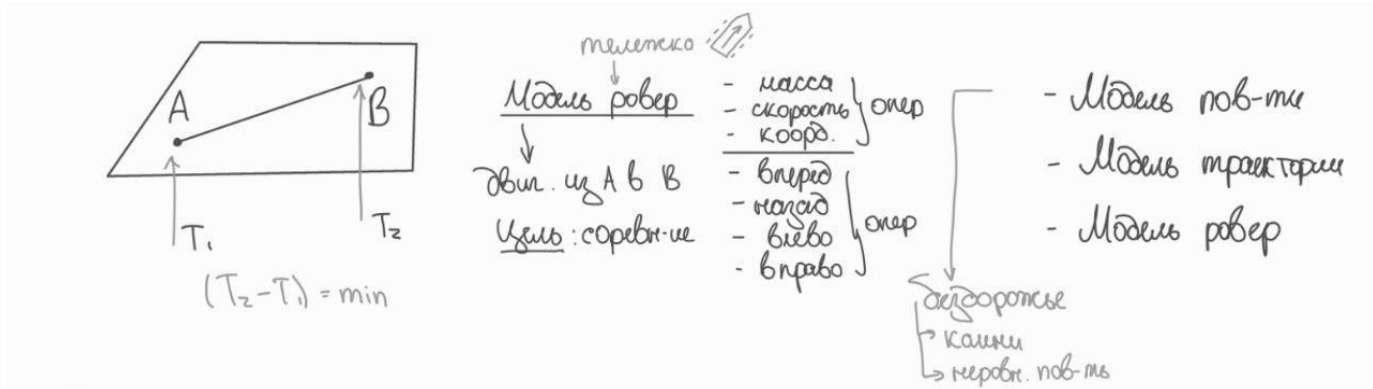 A
B
T₁
T₂
(T₂-T₁) = min
Модель ровер
двиг. из А в В
Цель: соревн-ие
- масса
- скорость
- коорд.
опер
- вперед
- назад
- влево
- вправо
опер
бездорожье
камни
неровн. пов-ть
- Модель пов-ти
- Модель траектории
- Модель ровер